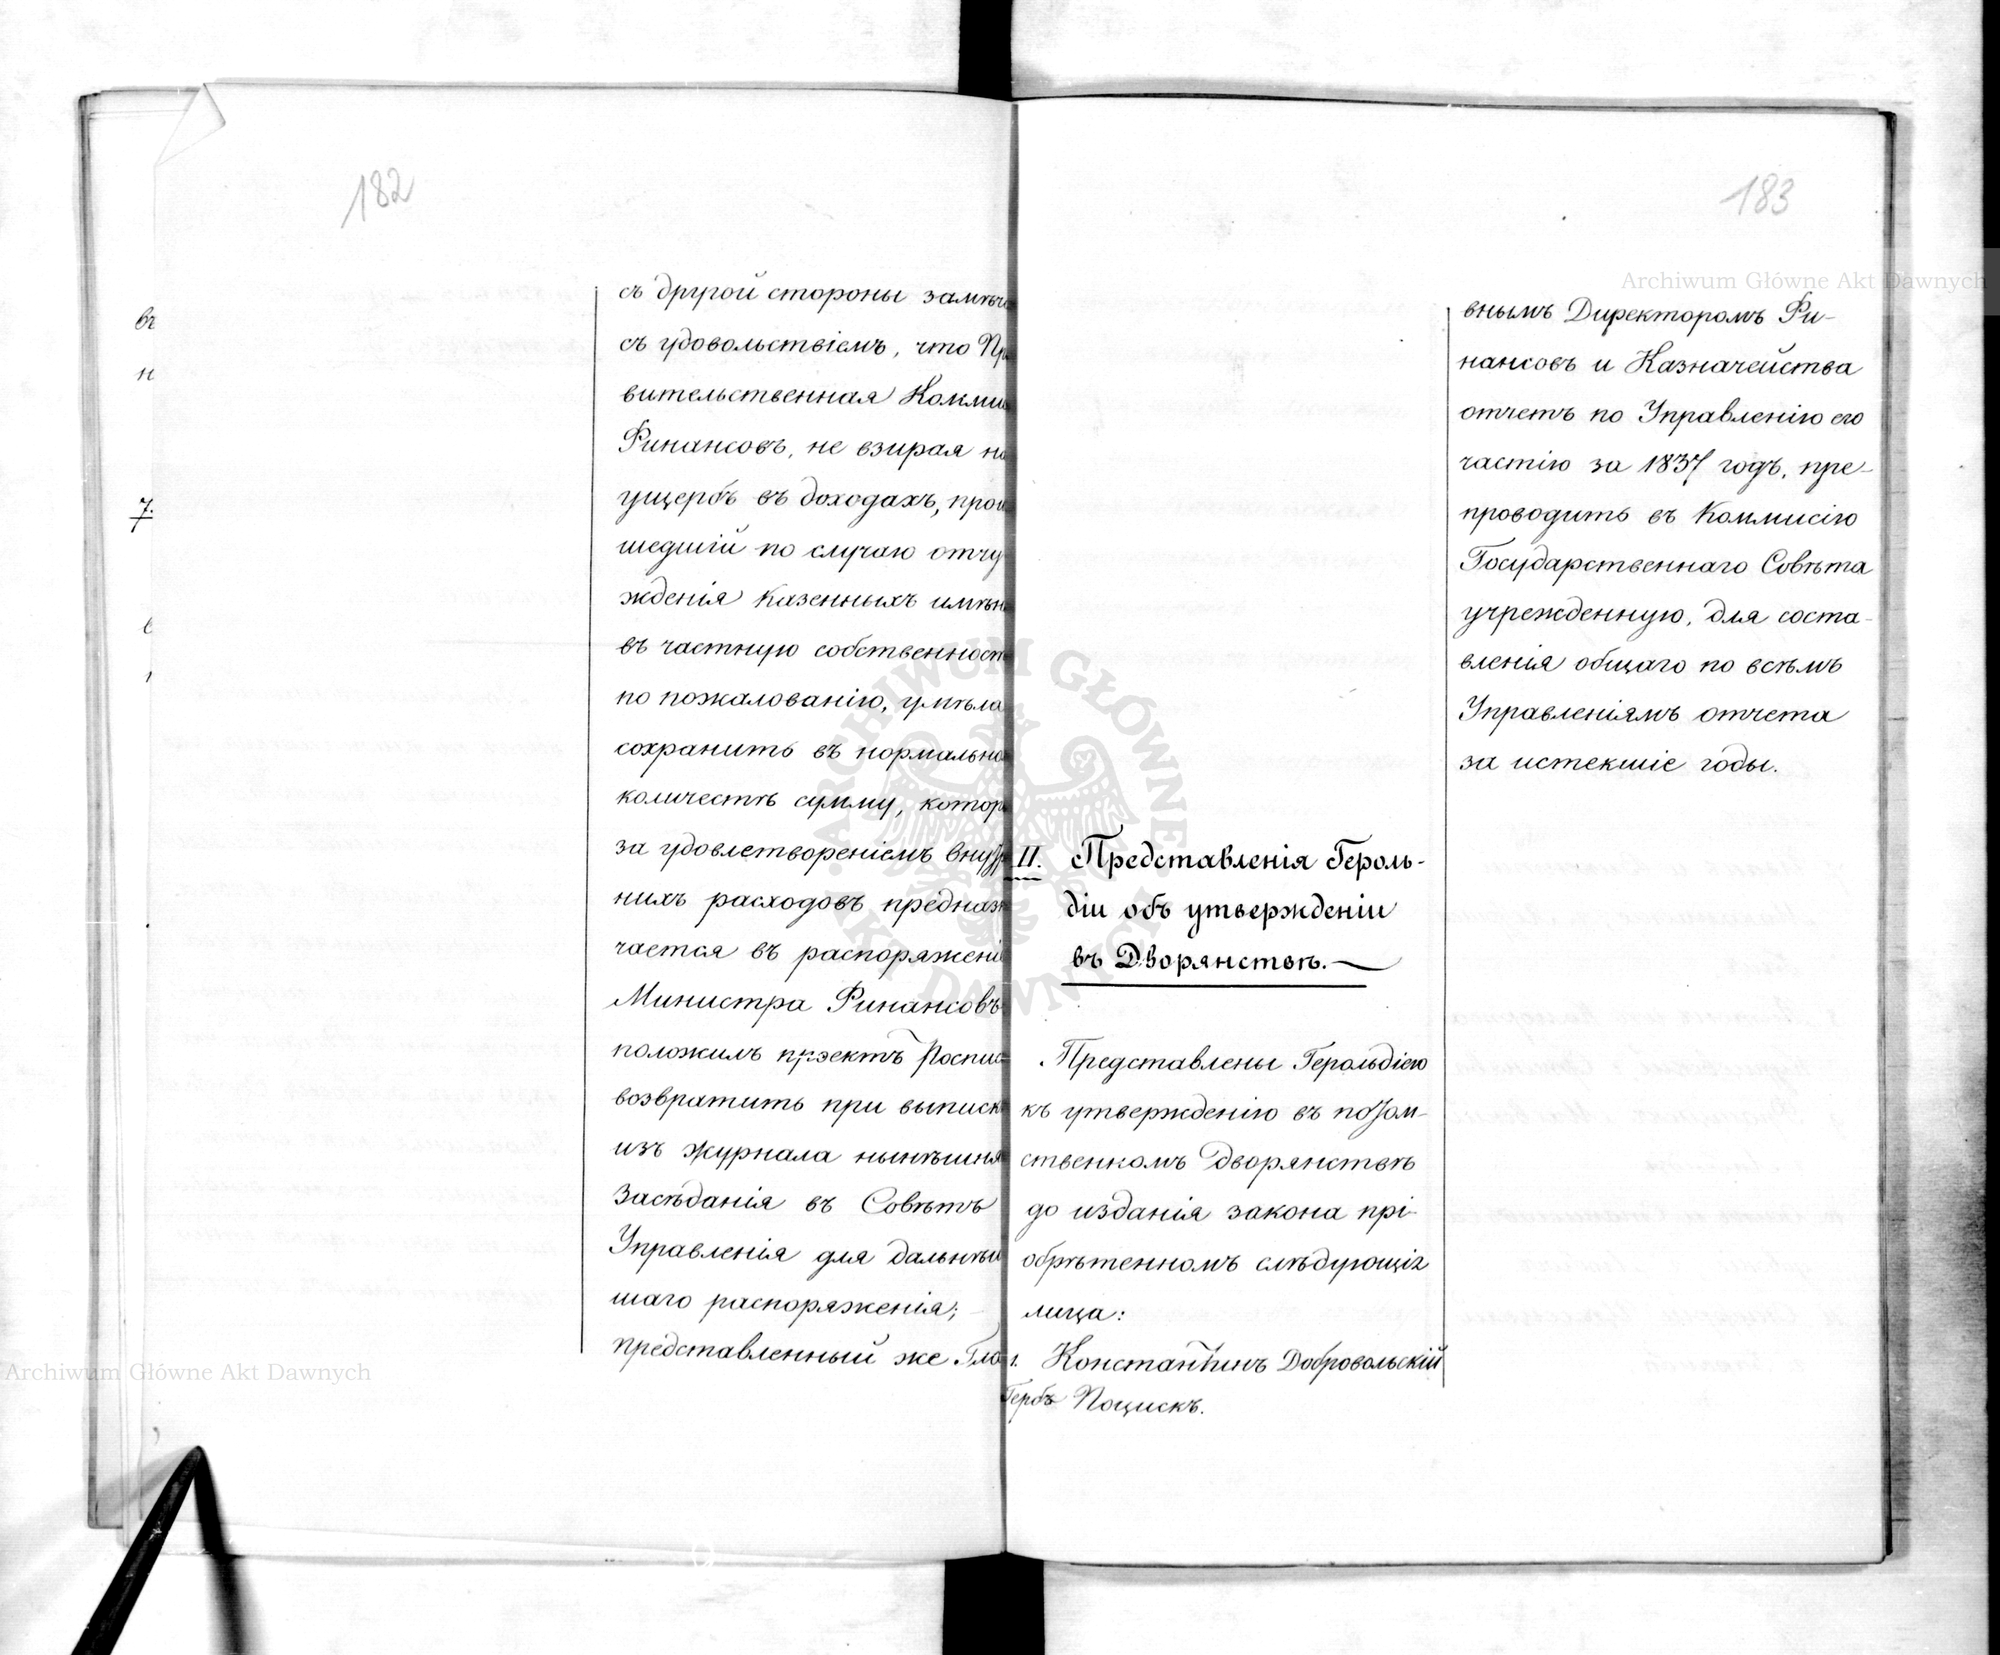 182
съ другой стороны замѣч
съ удовольствіемъ, что Пр
вительственная Комми
Финансовъ, не взирая на
ущербъ въ доходахъ, прои
шедшій по случаю отчу
жденія казенныхъ имѣн
въ частную собственност
по пожалованію, умѣла
сохранить въ нормально
количествѣ сумму, котор
за удовлетвореніемъ внут
нихъ расходовъ предназн
чается въ распоряжені
Министра Финансовъ
положилъ проектъ Роспис
возвратить при выписк
изъ журнала нынѣшня
Засѣданія въ Совѣтъ
Управленія для дальнѣй
шаго распоряженія;
представленный же Гла
въ
н
7.
183
внымъ Директоромъ Фи-
нансовъ и Казначейства
отчетъ по Управленію его
частію за 1837 годъ, пре-
проводить въ Коммисію
Государственнаго Совѣта
учрежденную, для соста-
вленія общаго по всѣмъ
Управленіямъ отчета
за истекшіе годы.
II. Представленія Героль-
діи объ утвержденіи
въ Дворянствѣ.—
Представлены Герольдіею
къ утвержденію въ потом-
ственномъ Дворянствѣ
до изданія закона прі-
обрѣтенномъ слѣдующія
лица:
1. Константинъ Добровольскій
Гербъ Поцискъ.
Archiwum Główne Akt Dawnych
Archiwum Główne Akt Dawnych
ARCHIWUM GŁÓWNE
AKT DAWNYCH